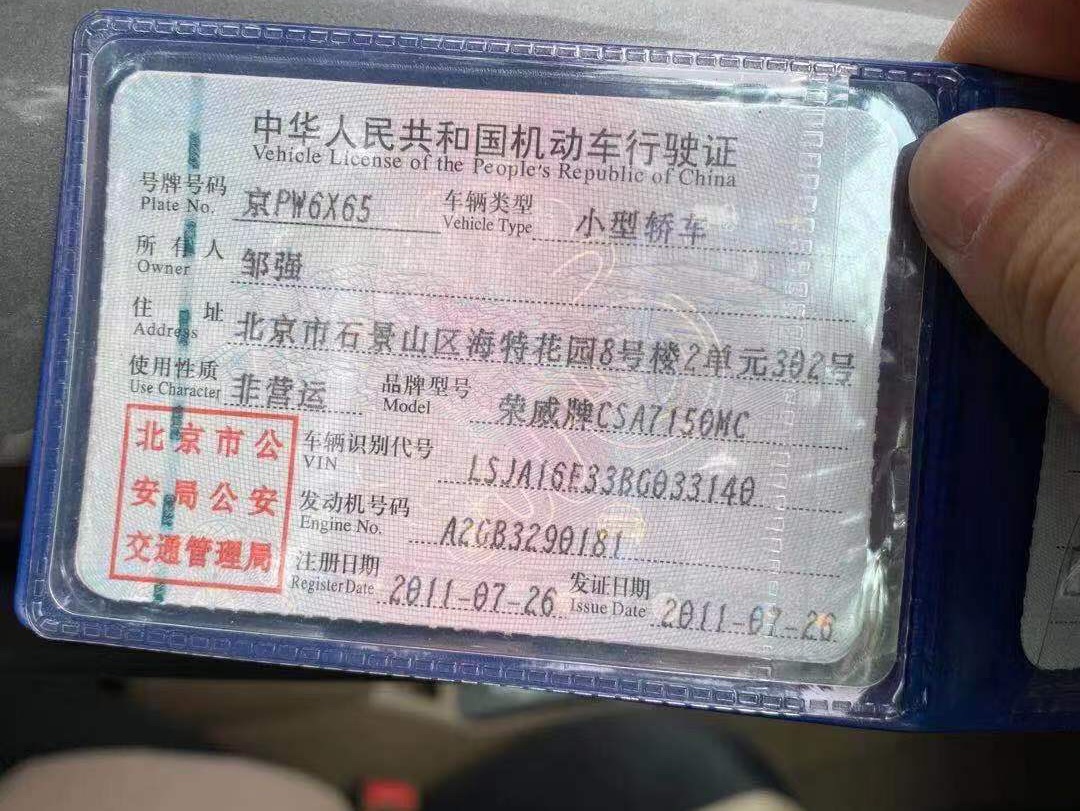 中华人民共和国机动车行驶证
Vehicle License of the People's Republic of China
号牌号码 京PW6X65 车辆类型 小型轿车
Plate No. Vehicle Type
所有人 邹强
Owner
住址 北京市石景山区海特花园8号楼2单元302号
Address
使用性质 非营运 品牌型号 荣威牌CSA7150MC
Use Character Model
车辆识别代号 LSJA16E33BG033140
VIN
发动机号码 A2GB3290181
Engine No.
注册日期 2011-07-26 发证日期 2011-07-26
Register Date Issue Date
北京市公
安局公安
交通管理局